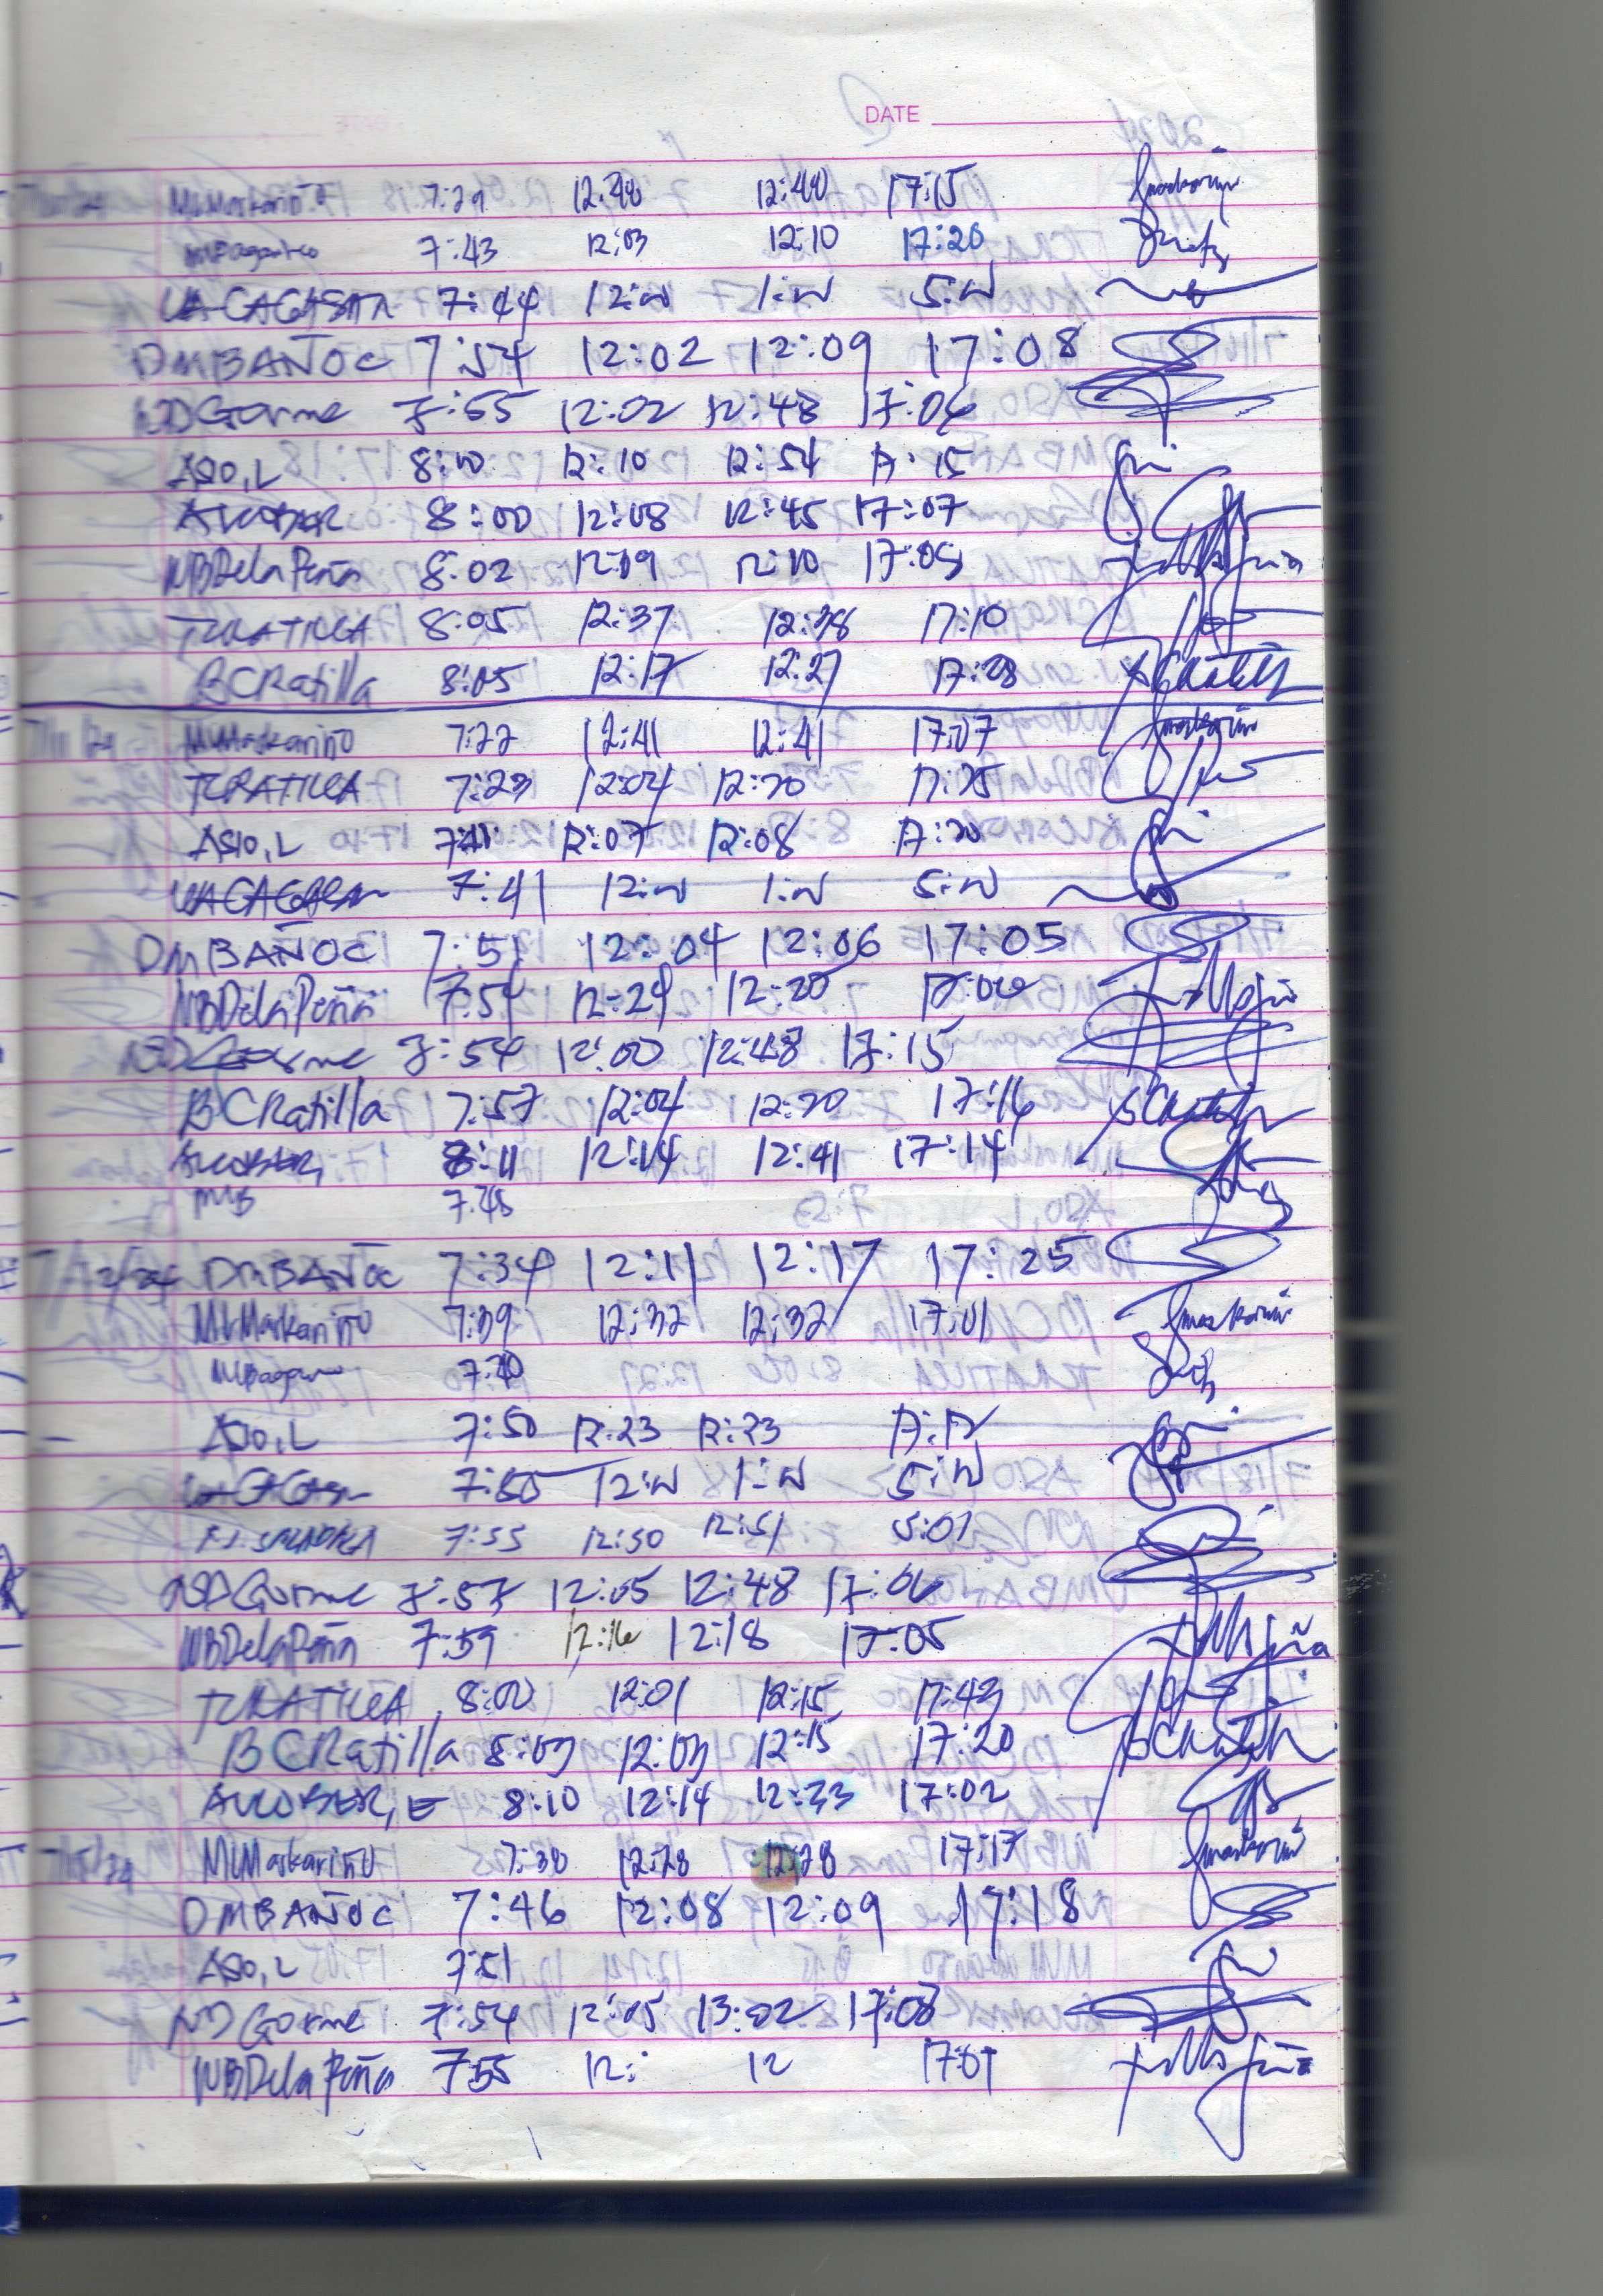 DATE
MLMaskariño 7:29 12:40 12:40 17:15
7:43 12:03 12:10 17:20
7:44 12:w 1:w 5:w
DMBAÑOC 7:54 12:02 12:09 17:08
NDGorme 7:55 12:02 12:48 17:06
ASIO,L 8:10 12:10 12:54 17:15
8:00 12:08 12:45 17:07
WBDelaPeña 8:02 12:09 12:10 17:05
TCRATILLA 8:05 12:37 12:38 17:10
BCRatilla 8:05 12:17 12:27 17:28
7/11/24 MLMaskariño 7:22 12:41 12:41 17:07
TCRATILLA 7:23 12:04 12:20 17:25
ASIO,L 7:41 12:07 12:08 17:20
7:41 12:w 1:w 5:w
DMBAÑOC 7:51 12:04 12:06 17:05
WBDelaPeña 7:54 12:29 12:30 17:06
NDGorme 7:54 12:00 12:48 17:15
BCRatilla 7:57 12:04 12:20 17:16
8:11 12:14 12:41 17:14
MLB 7:48
7/12/24 DMBAÑOC 7:34 12:11 12:17 17:25
MLMaskariño 7:39 12:32 12:32 17:01
7:40
ASIO,L 7:50 12:23 12:23 17:12
7:50 12:w 1:w 5:w
7:55 12:50 12:51 5:01
NDGorme 7:57 12:05 12:48 17:06
WBDelaPeña 7:59 12:16 12:18 17:05
TCRATILLA 8:00 12:01 12:15 17:43
BCRatilla 8:03 12:03 12:15 17:20
8:10 12:14 12:33 17:02
7/15/24 MLMaskariño 7:30 12:28 12:28 17:17
DMBAÑOC 7:46 12:08 12:09 17:18
ASIO,L 7:51
NDGorme 7:54 12:05 13:02 17:08
WBDelaPeña 7:55 12: 12 17:07